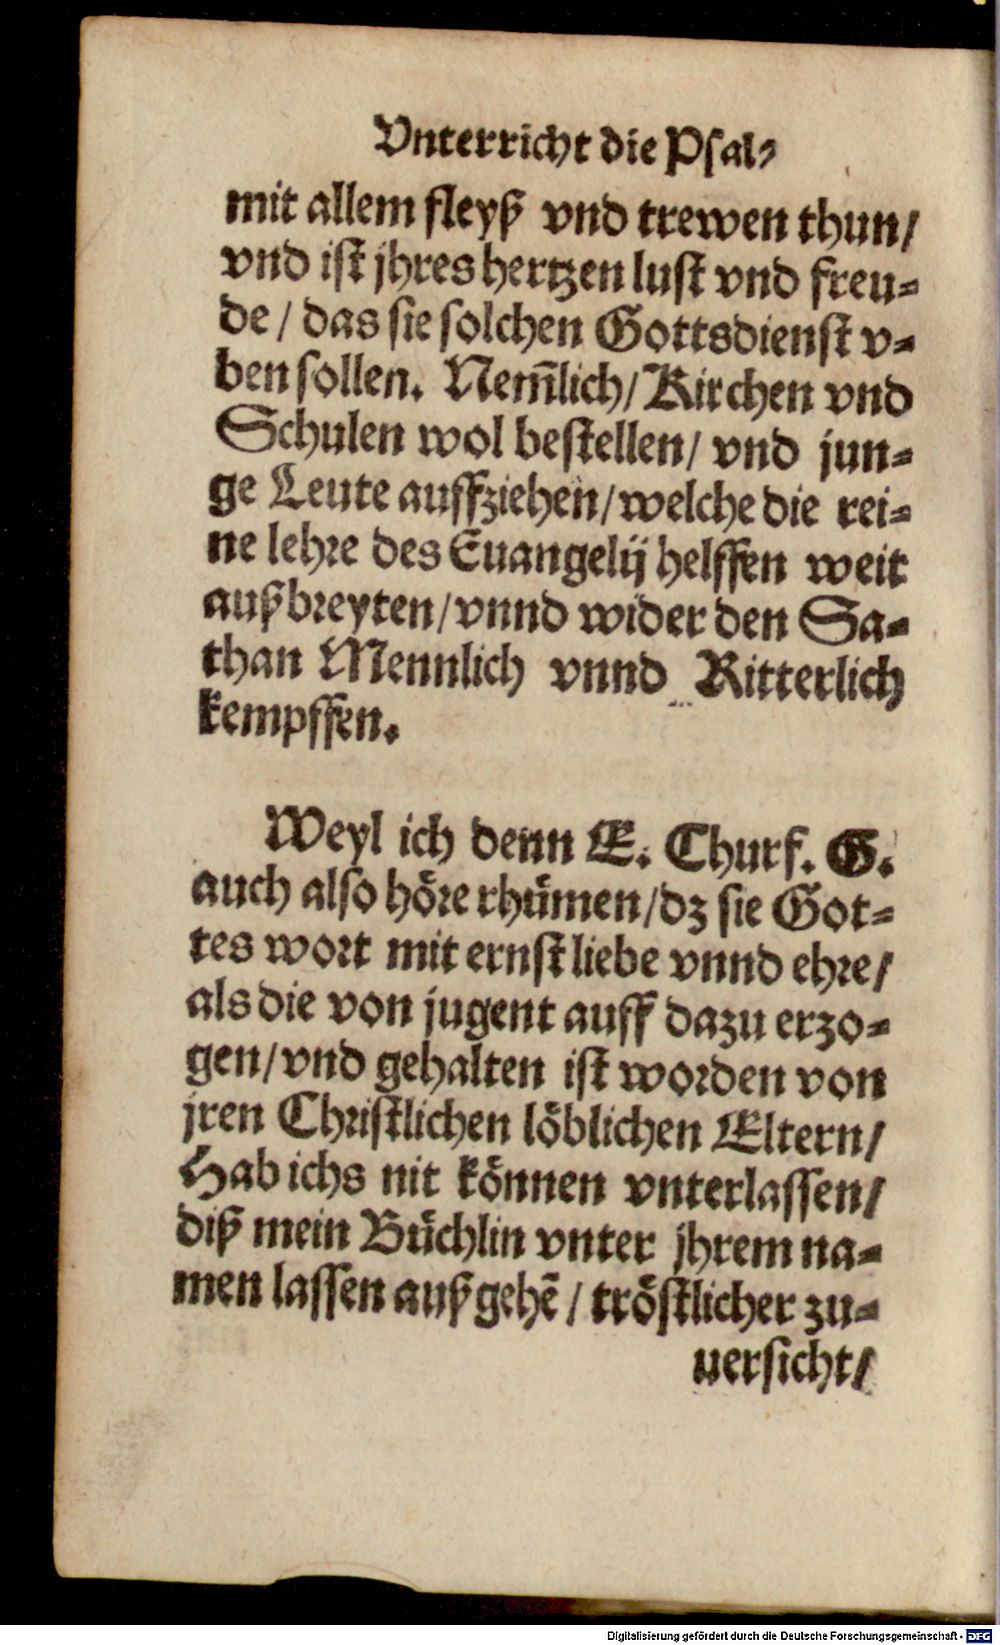 Vnterricht die Psal⸗
mit allem fleyß vnd trewen thun/
vnd ist jhres hertzen lust vnd freu⸗
de / das sie solchen Gottsdienst v⸗
ben sollen. Nem̃lich/ Kirchen vnd
Schulen wol bestellen/ vnd jun⸗
ge Leute auffziehen/ welche die rei⸗
ne lehre des Euangelij helffen weit
außbreyten/ vnnd wider den Sa⸗
than Mennlich vnnd Ritterlich
kempffen.
Weyl ich denn E. Churf. G.
auch also hoͤre rhuͤmen/ dz sie Got⸗
tes wort mit ernst liebe vnnd ehre/
als die von jugent auff dazu erzo⸗
gen/ vnd gehalten ist worden von
jren Christlichen loͤblichen Eltern/
Hab ichs nit koͤnnen vnterlassen/
diß mein Buͤchlin vnter jhrem na⸗
men lassen außgehẽ / troͤstlicher zu⸗
uersicht/
Digitalisierung gefördert durch die Deutsche Forschungsgemeinschaft - DFG